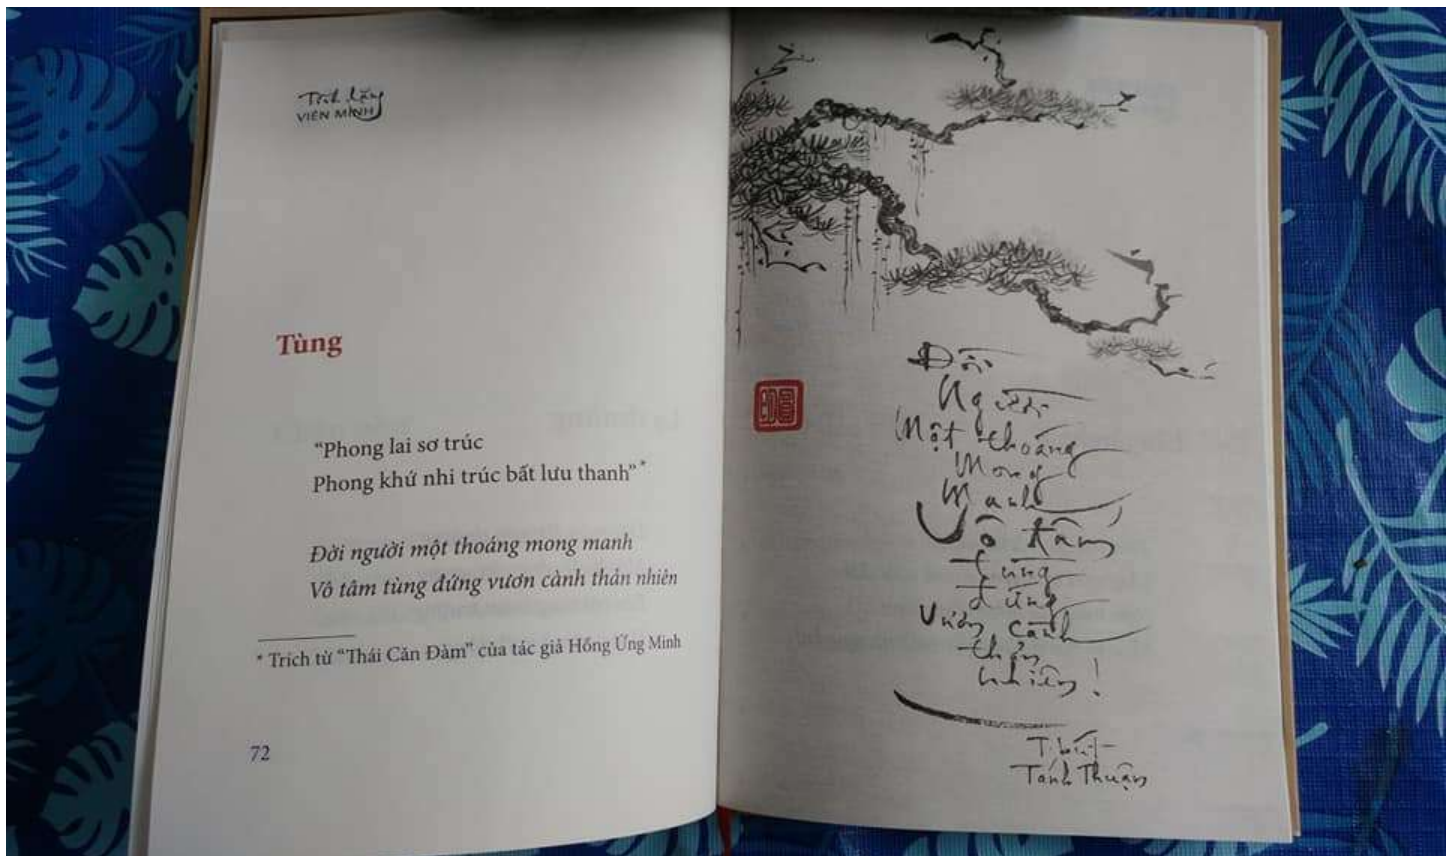 Tĩnh lặng
VIÊN MINH
Tùng
“Phong lai sơ trúc
Phong khứ nhi trúc bất lưu thanh”*
Đời người một thoáng mong manh
Vô tâm tùng đứng vươn cành thản nhiên
* Trích từ “Thái Căn Đàm” của tác giả Hồng Ứng Minh
72
Đời
Người
Một thoáng
Mong
Manh
Vô tâm
tùng
đứng
Vươn cành
thản
nhiên!
T.bút
Tánh Thuận